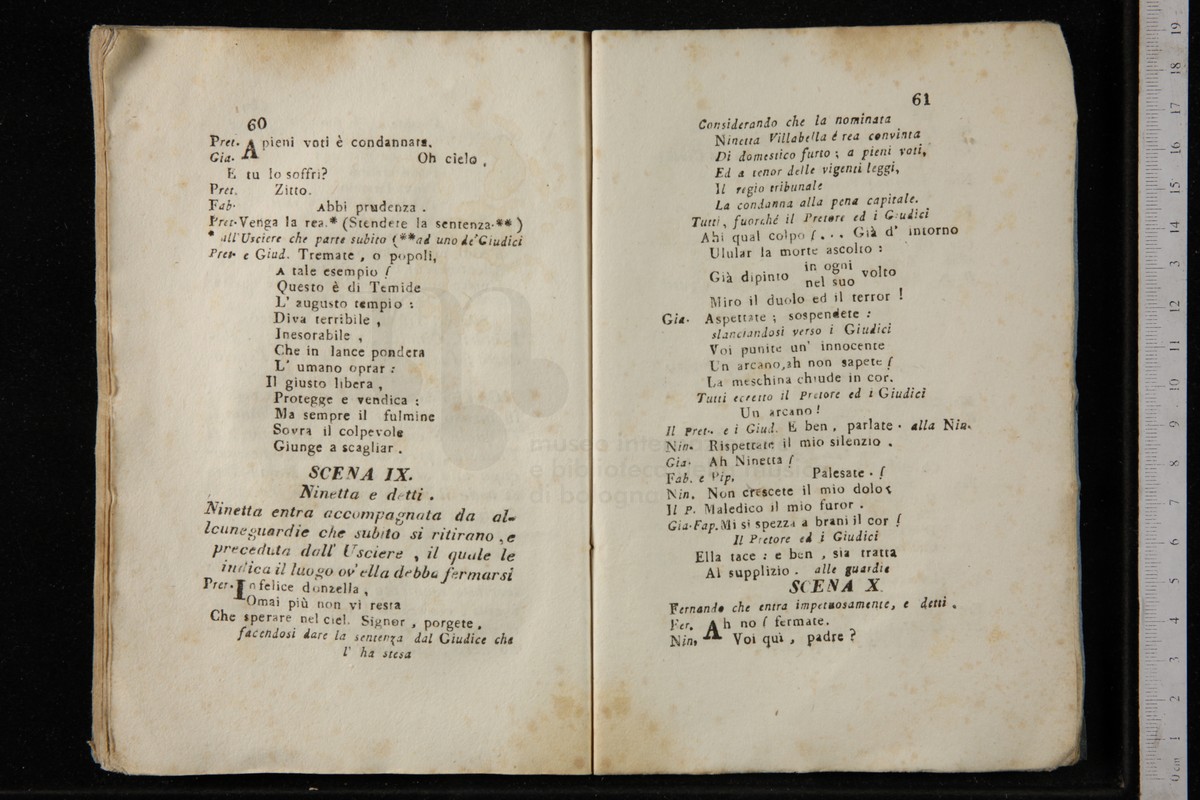 60
Pret. A pieni voti è condannata.
Gia. Oh cielo,
E tu lo soffri?
Pret. Zitto.
Fab. Abbi prudenza.
Pret. Venga la rea.* (Stendete la sentenza.**)
* all'Usciere che parte subito (**ad uno de'Giudici
Pret. e Giud. Tremate, o popoli,
A tale esempio!
Questo è di Temide
L' augusto tempio:
Diva terribile,
Inesorabile,
Che in lance pondera
L' umano oprar:
Il giusto libera,
Protegge e vendica:
Ma sempre il fulmine
Sovra il colpevole
Giunge a scagliar.
SCENA IX.
Ninetta e detti.
Ninetta entra accompagnata da al-
lcuneguardie che subito si ritirano, e
preceduta dall' Usciere, il quale le
indica il luogo ov' ella debba fermarsi
Pret. Infelice donzella,
Omai più non vi resta
Che sperare nel ciel. Signor, porgete.
facendosi dare la sentenza dal Giudice che
l' ha stesa
61
Considerando che la nominata
Ninetta Villabella é rea convinta
Di domestico furto; a pieni voti,
Ed a tenor delle vigenti leggi,
Il regio tribunale
La condanna alla pena capitale.
Tutti, fuorché il Pretore ed i Giudici
Ahi qual colpo!... Già d' intorno
Ulular la morte ascolto:
Già dipinto in ogni volto
nel suo
Miro il duolo ed il terror!
Gia. Aspettate; sospendete:
slanciandosi verso i Giudici
Voi punite un' innocente
Un arcano,ah non sapete!
La meschina chiude in cor.
Tutti ecretto il Pretore ed i Giudici
Un arcano!
Il Pret. e i Giud. E ben, parlate. alla Nin.
Nin. Rispettate il mio silenzio.
Gia. Ah Ninetta!
Fab. e Pip. Palesate.!
Nin. Non crescete il mio dolor
Il P. Maledico il mio furor.
Gia. Fap. Mi si spezza a brani il cor!
Il Pretore ed i Giudici
Ella tace: e ben, sia tratta
Al supplizio. alle guardie
SCENA X.
Fernando che entra impetuosamente, e detti.
Fer. Ah no! fermate.
Nin. Voi quì, padre?
museo inte
e biblioteca della musica
di bologna
0 cm 1 2 3 4 5 6 7 8 9 10 11 12 13 14 15 16 17 18 19